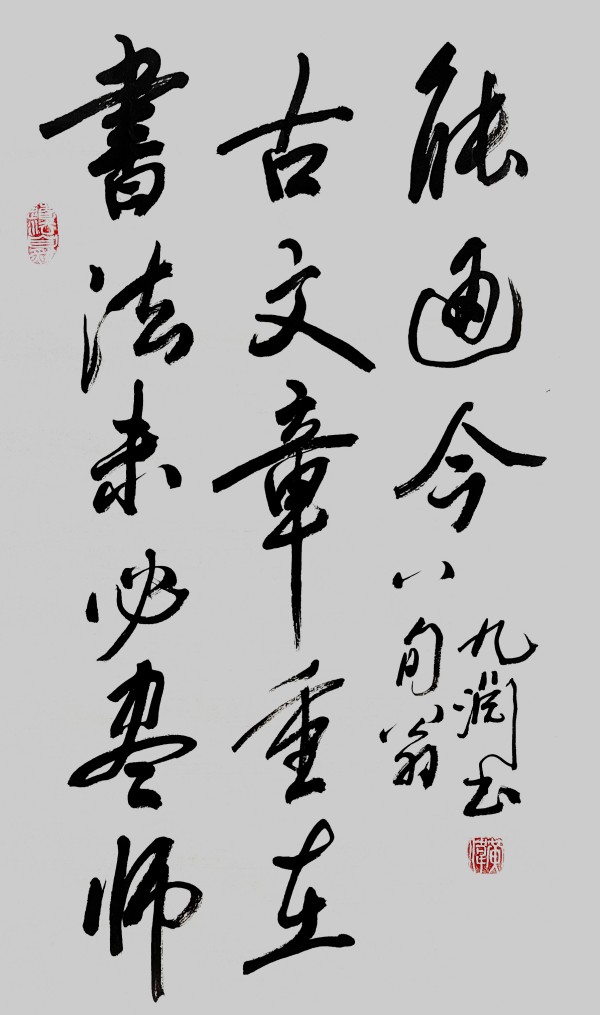 書法未必尽师
古文章重在
能通今
八旬翁
九渊书